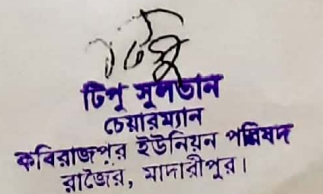 টিপু সুলতান
চেয়ারম্যান
কবিরাজপুর ইউনিয়ন পরিষদ
রাজৈর, মাদারীপুর।